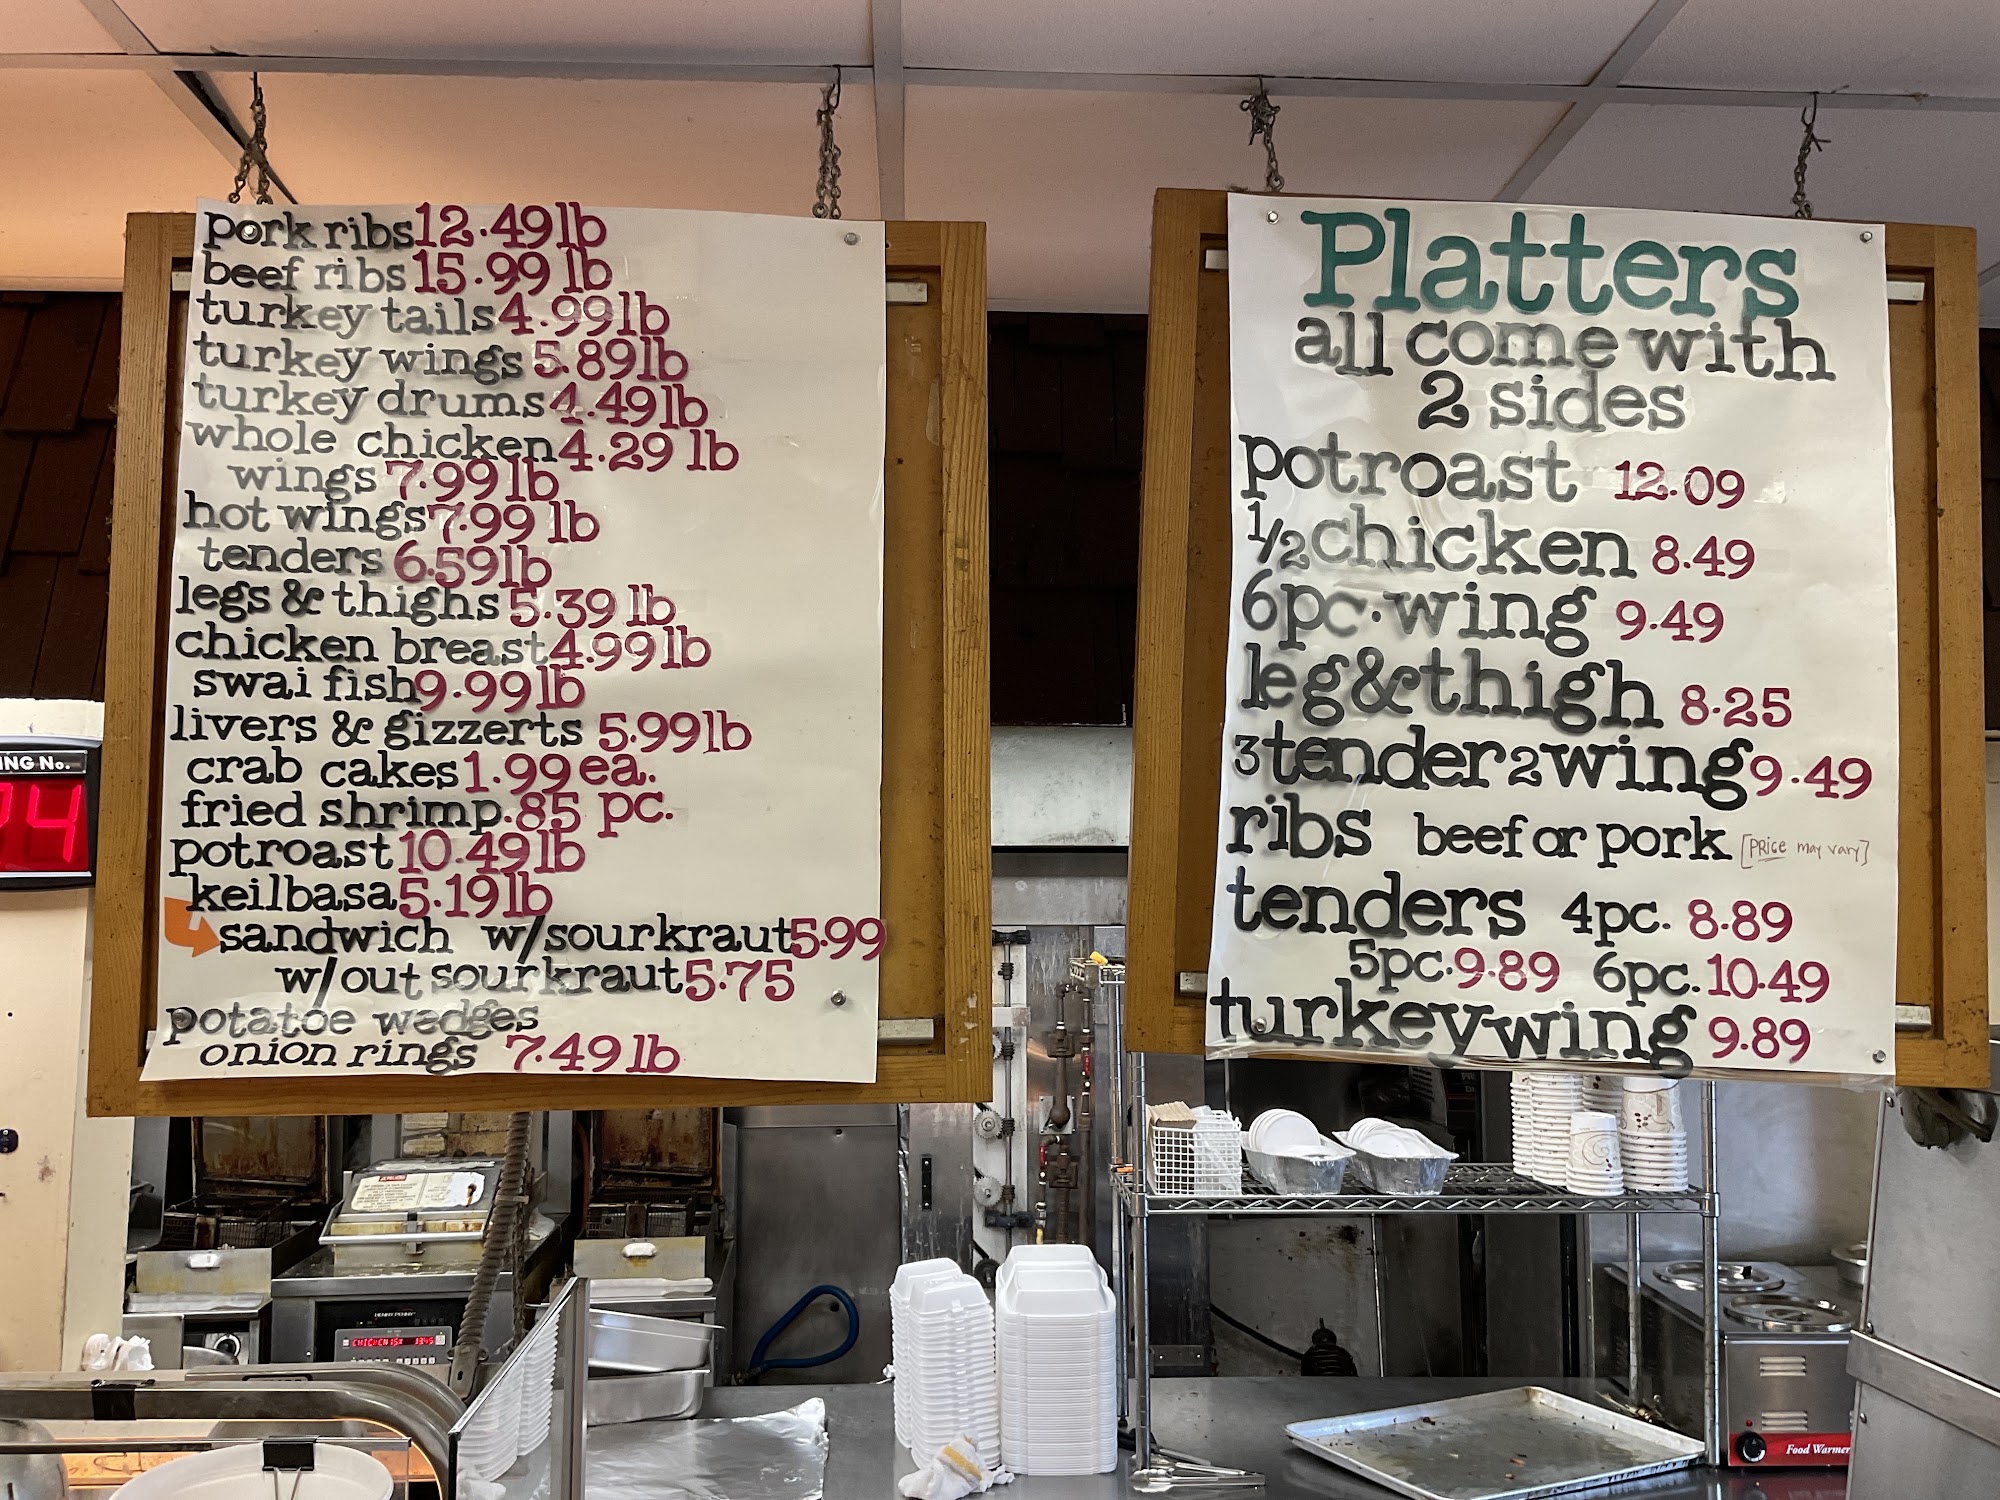 pork ribs 12.49 lb
beef ribs 15.99 lb
turkey tails 4.99 lb
turkey wings 5.89 lb
turkey drums 4.49 lb
whole chicken 4.29 lb
wings 7.99 lb
hot wings 7.99 lb
tenders 6.59 lb
legs & thighs 5.39 lb
chicken breast 4.99 lb
swai fish 9.99 lb
livers & gizzerts 5.99 lb
crab cakes 1.99 ea.
fried shrimp .85 pc.
potroast 10.49 lb
keilbasa 5.19 lb
sandwich w/sourkraut 5.99
w/out sourkraut 5.75
potatoe wedges
onion rings 7.49 lb
Platters
all come with
2 sides
potroast 12.09
1/2 chicken 8.49
6pc. wing 9.49
leg & thigh 8.25
3 tender 2 wing 9.49
ribs beef or pork [PRice may vary]
tenders 4pc. 8.89
5pc. 9.89 6pc. 10.49
turkey wing 9.89
ING No.
4
HENNY PENNY
Food Warmer